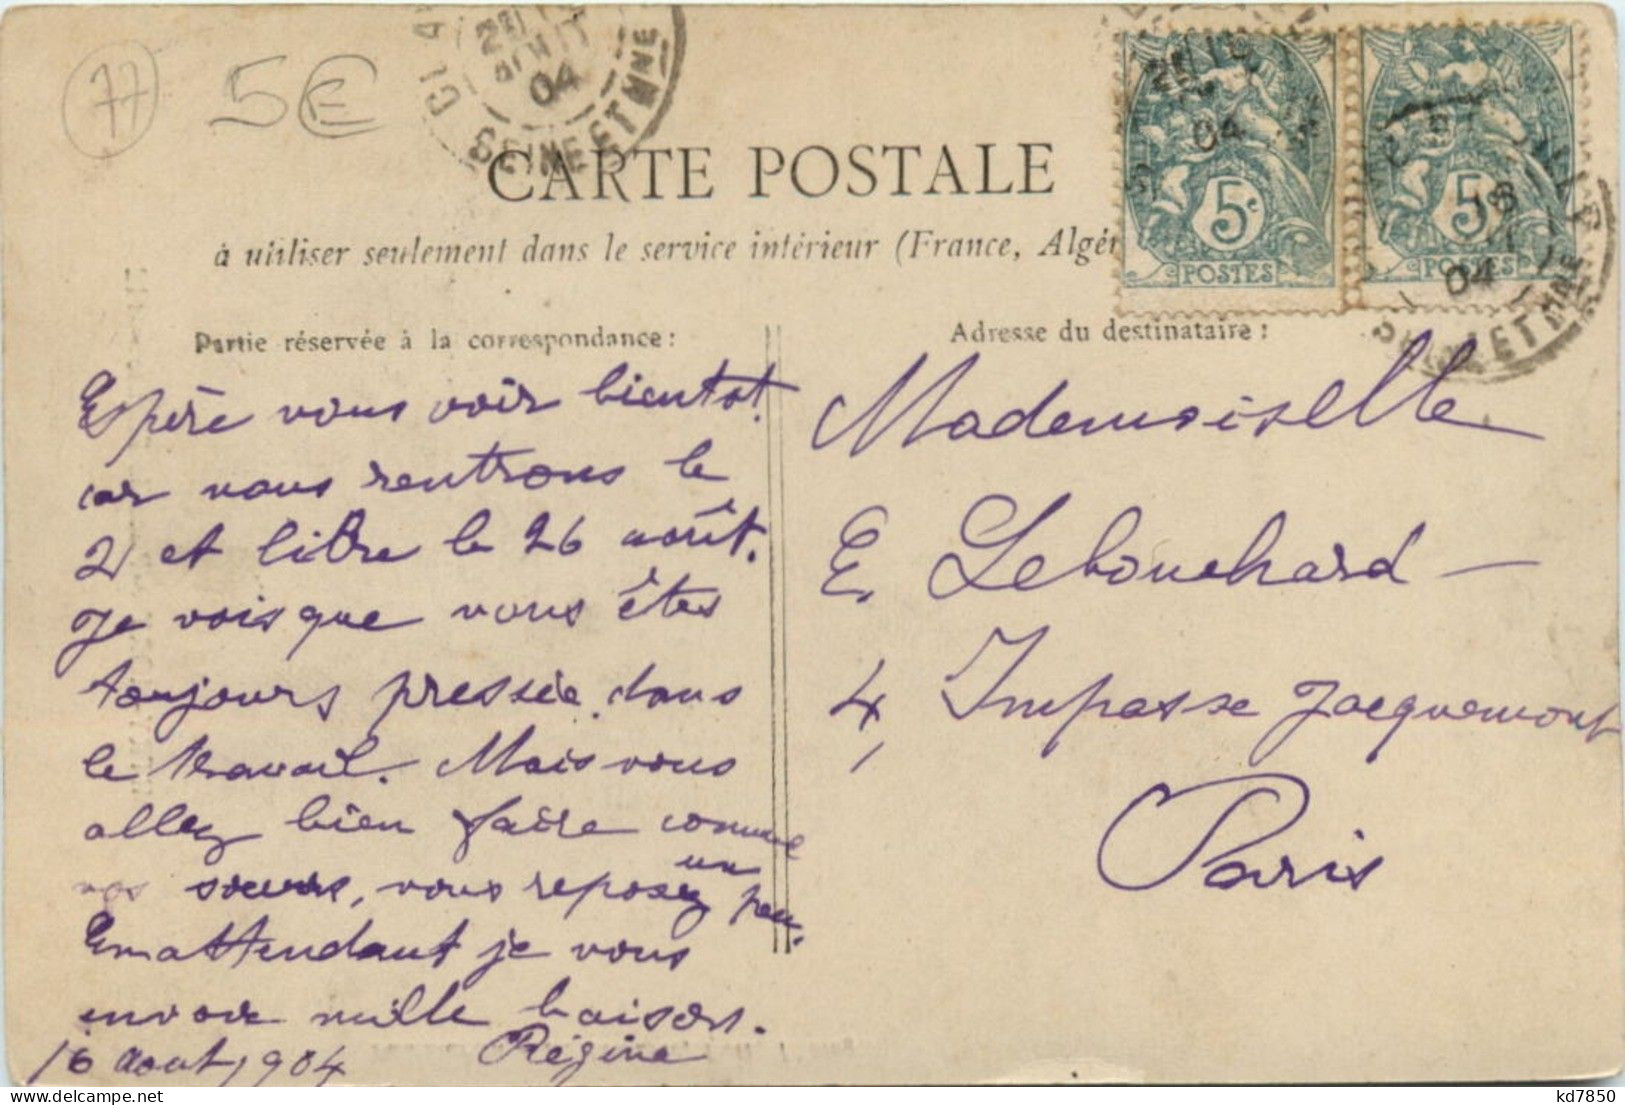 77
5€
SEINE ET MNE
04
CARTE POSTALE
à utiliser seulement dans le service intérieur (France, Algér
5c
POSTES
04
5
POSTES
18
04
ET MNE
Partie réservée à la correspondance :
Espère vous voir bientot
car nous rentrons le
2 et libre le 26 août.
Je vois que vous êtes
toujours pressée dans
le travail. Mais vous
allez bien faire comme
vos soeurs, vous reposez un peu.
En attendant je vous
envoie mille baisers.
16 aout 1904 Régine
Adresse du destinataire :
Mademoiselle
E. Lebouchard –
4, Impasse Jacquemont
Paris
kd7850